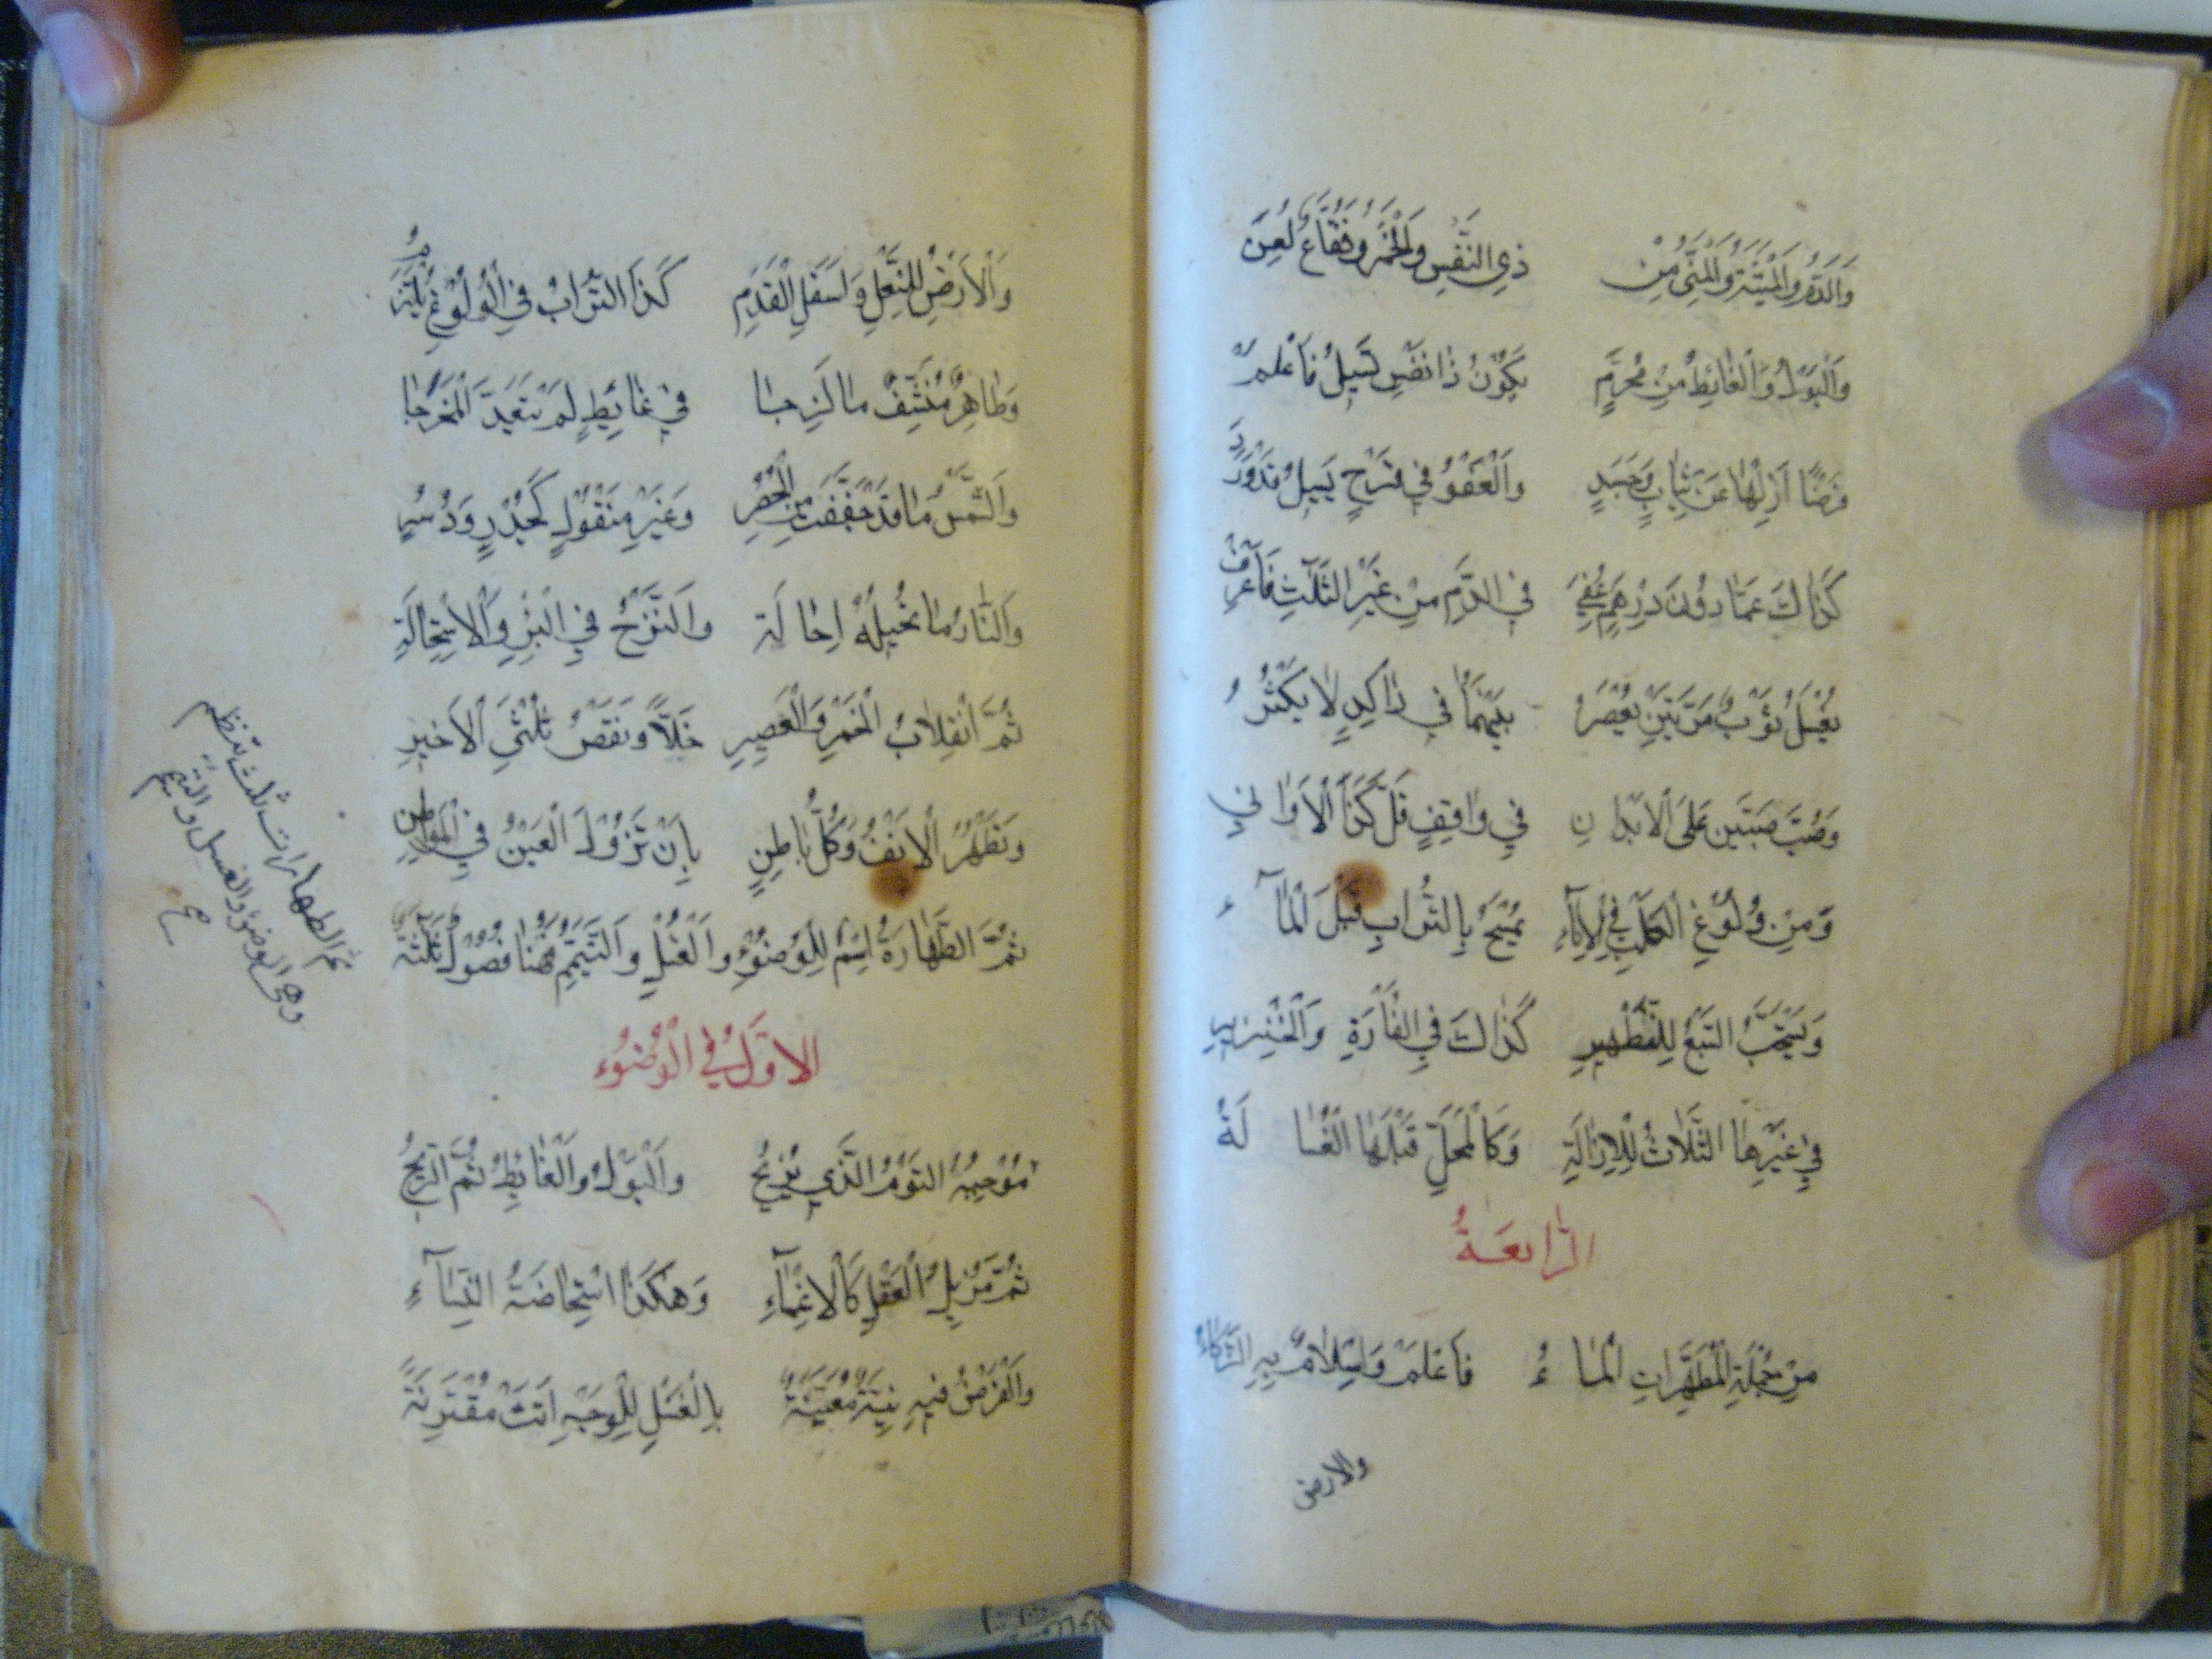 وَالدَّمُ وَالْمَيْتَةُ وَالْمَنِيُّ مِنْ ذِي النَّفْسِ وَالْخَمْرُ وَفُقَّاعٌ لُعِنَ
وَالْبَوْلُ وَالْغَائِطُ مِنْ مُحَرَّمٍ يَكُوْنُ ذَا نَفْسٍ تَسِيلُ فَاعْلَمْ
فَرْضًا اَزِلْهَا عَنْ ثِيَابٍ وَجَسَدٍ وَالْعَفْوُ فِي قَرْحٍ يَسِيلُ قَدْ وَرَدَ
كَذَاكَ عَمَّا دُوْنَ دِرْهَمٍ عُفِيَ فِي الدَّمِ مِنْ غَيْرِ الثَّلَاثِ فَاعْرِفْ
يُغْسَلُ ثَوْبٌ مَرَّتَيْنِ يُعْصَرُ بَيْنَهُمَا فِي رَاكِدٍ لَا يَكْثُرُ
وَصُبَّ صَبَّتَيْنِ عَلَى الْاَبْدَانِ فِي وَاقِفٍ قَلَّ كَذَا الْاَوَانِي
وَمِنْ وُلُوْغِ الْكَلْبِ فِي الْاِنَاءِ يُمْسَحُ بِالتُّرَابِ قَبْلَ الْمَآءِ
وَيُسْتَحَبُّ السَّبْعُ لِلتَّطْهِيرِ كَذَاكَ فِي الْفَأْرَةِ وَالْخِنْزِيرِ
فِي غَيْرِهَا الثَّلَاثُ لِلْاِزَالَةِ وَكَالْمَحَلِّ قَبْلَهَا الْغُسَالَةُ
الرَّابِعَةُ
مِنْ جُمْلَةِ الْمُطَهِّرَاتِ الْمَاءُ فَاعْلَمْ وَاِسْلَامٌ بِهِ الزَّكَاءُ
والارض
وَالْاَرْضُ لِلنَّعْلِ وَاَسْفَلِ الْقَدَمِ كَذَا التُّرَابُ فِي الْوُلُوْغِ
وَطَاهِرٌ مُنَشِّفٌ مَا لَزِجَا فِي غَائِطٍ لَمْ يَتَعَدَّ الْمَخْرَجَا
وَالشَّمْسُ مَا قَدْ جَفَّفَتْ مِنْ وَغَيْرِ مَنْقُوْلٍ كَجُدْرٍ وَدُسُرٍ
وَالنَّارُ مَا تُحِيلُهُ اِحَالَة وَالنَّزْحُ فِي الْبِئْرِ وَالْاِسْتِحَالَةِ
ثُمَّ انْقِلَابُ الْخَمْرِ وَالْعَصِيرِ خَلًّا وَنَقْصُ ثُلْثَيِ الْاَخِيرِ
وَيَطْهُرُ الْاَنْفُ وَكُلُّ بَاطِنٍ بِاَنْ تَزُوْلَ الْعَيْنُ فِي الْمَوَاطِنِ
ثُمَّ الطَّهَارَةُ اِسْمٌ لِلْوُضُوْءِ وَالْغُسْلِ وَالتَّيَمُّمِ هُنَا فُصُوْلٌ ثَلٰثَةٌ
ثم الطهارات ثلث تنتظم
وهي الوضوء والغسل والتيمم
الاَوَّلُ فِي الْوُضُوْءِ
مُوْجِبُهُ النَّوْمُ الَّذِي يُزِيحُ وَالْبَوْلُ وَالْغَائِطُ ثُمَّ الرِّيحُ
ثُمَّ مُزِيلُ الْعَقْلِ كَالْاِغْمَاءِ وَهٰكَذَا اسْتِحَاضَةُ النِّسَآءِ
وَالْفَرْضُ فِيهِ نِيَّةٌ مُعَيَّنَةٌ بِالْغَسْلِ لِلْوَجْهِ اَتَتْ مُقْتَرِنَةً